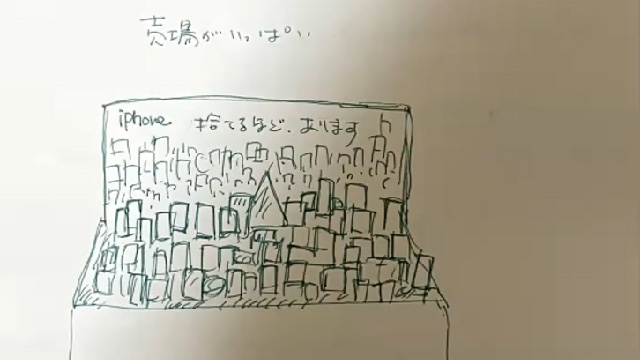 売場がいっぱい
iphone 捨てるほど、あります